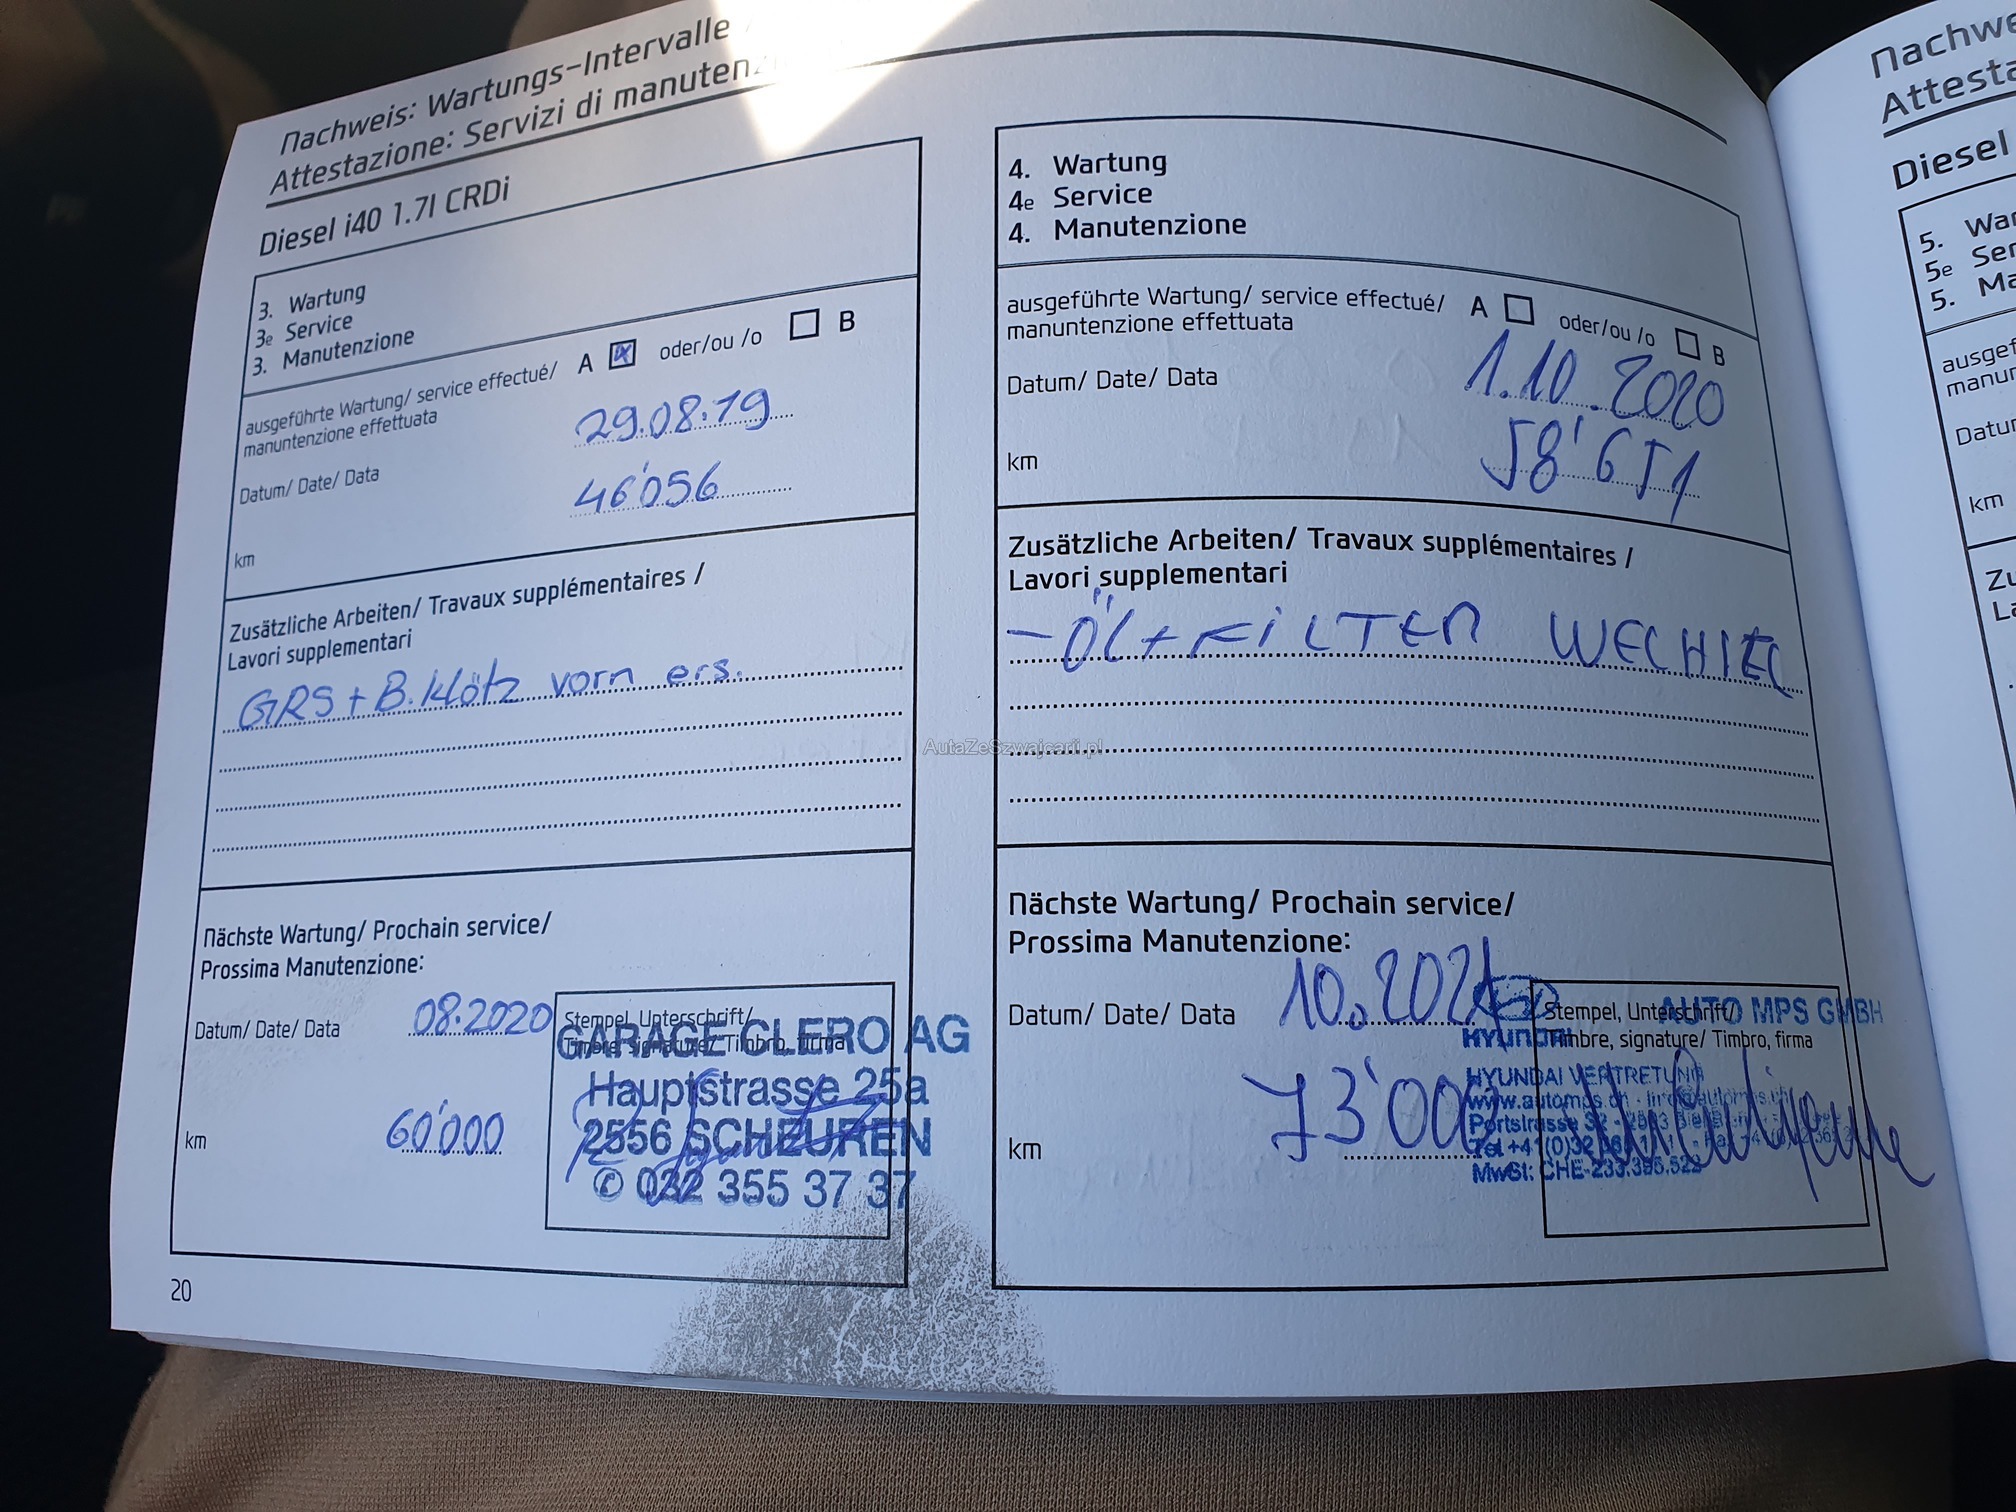 Nachweis: Wartungs-Intervalle
Attestazione: Servizi di manutenz
Diesel i40 1.7l CRDi
3. Wartung
3e Service
3. Manutenzione
ausgeführte Wartung/ service effectué/ A ☒ oder/ou /o ☐ B
manuntenzione effettuata
Datum/ Date/ Data 29.08.19
km 46'056
Zusätzliche Arbeiten/ Travaux supplémentaires /
Lavori supplementari
GRS + B.Klötz vorn ers.
Nächste Wartung/ Prochain service/
Prossima Manutenzione:
Datum/ Date/ Data 08.2020
km 60'000
Stempel, Unterschrift/
Timbre, signature/ Timbro, firma
GARAGE CLERO AG
Hauptstrasse 25a
2556 SCHEUREN
✆ 032 355 37 37
20
4. Wartung
4e Service
4. Manutenzione
ausgeführte Wartung/ service effectué/ A ☐ oder/ou /o ☐ B
manuntenzione effettuata
Datum/ Date/ Data 1.10.2020
km 58'651
Zusätzliche Arbeiten/ Travaux supplémentaires /
Lavori supplementari
- ÖL + FILTER WECHSEL
Nächste Wartung/ Prochain service/
Prossima Manutenzione:
Datum/ Date/ Data 10.2021
km 73'000
Stempel, Unterschrift/
Timbre, signature/ Timbro, firma
AUTO MPS GMBH
HYUNDAI
HYUNDAI VERTRETUNG
www.automps.ch
Portstrasse 32
Tel +41 (0)32
MwSt: CHE-233.395.522
AutaZeSzwajcarii.pl
Nachwe
Attesta
Diesel
5. War
5e Ser
5. Ma
ausgef
manur
Datur
km
Zu
La